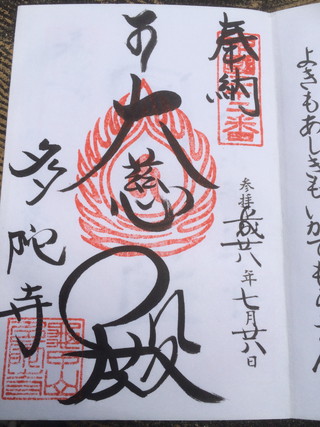 よきもあしきもいかでもらさん
奉納
参拝 平成廿八年七月廿八日
大慈殿
多陀寺